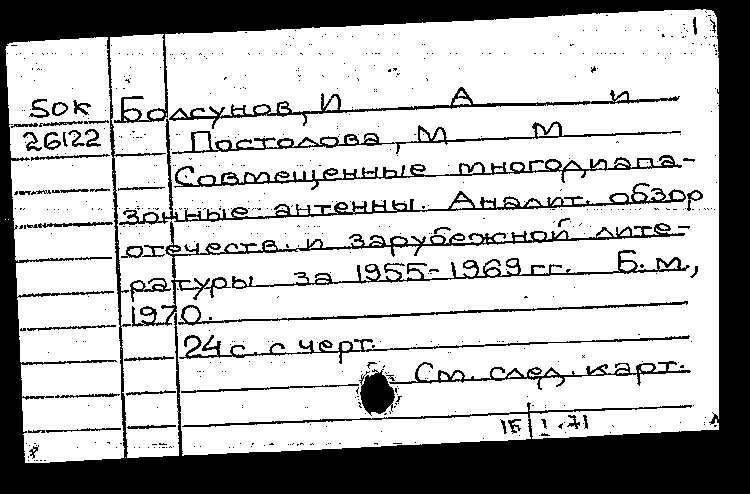 1
50к Болсунов, И А и
26122 Постолова, М М
Совмещенные многодиапа-
зонные антенны. Аналит. обзор
отечеств. и зарубежной лите-
ратуры за 1955-1969 гг. Б. м.,
1970.
24 с. с черт.
См. след. карт.
I. 71